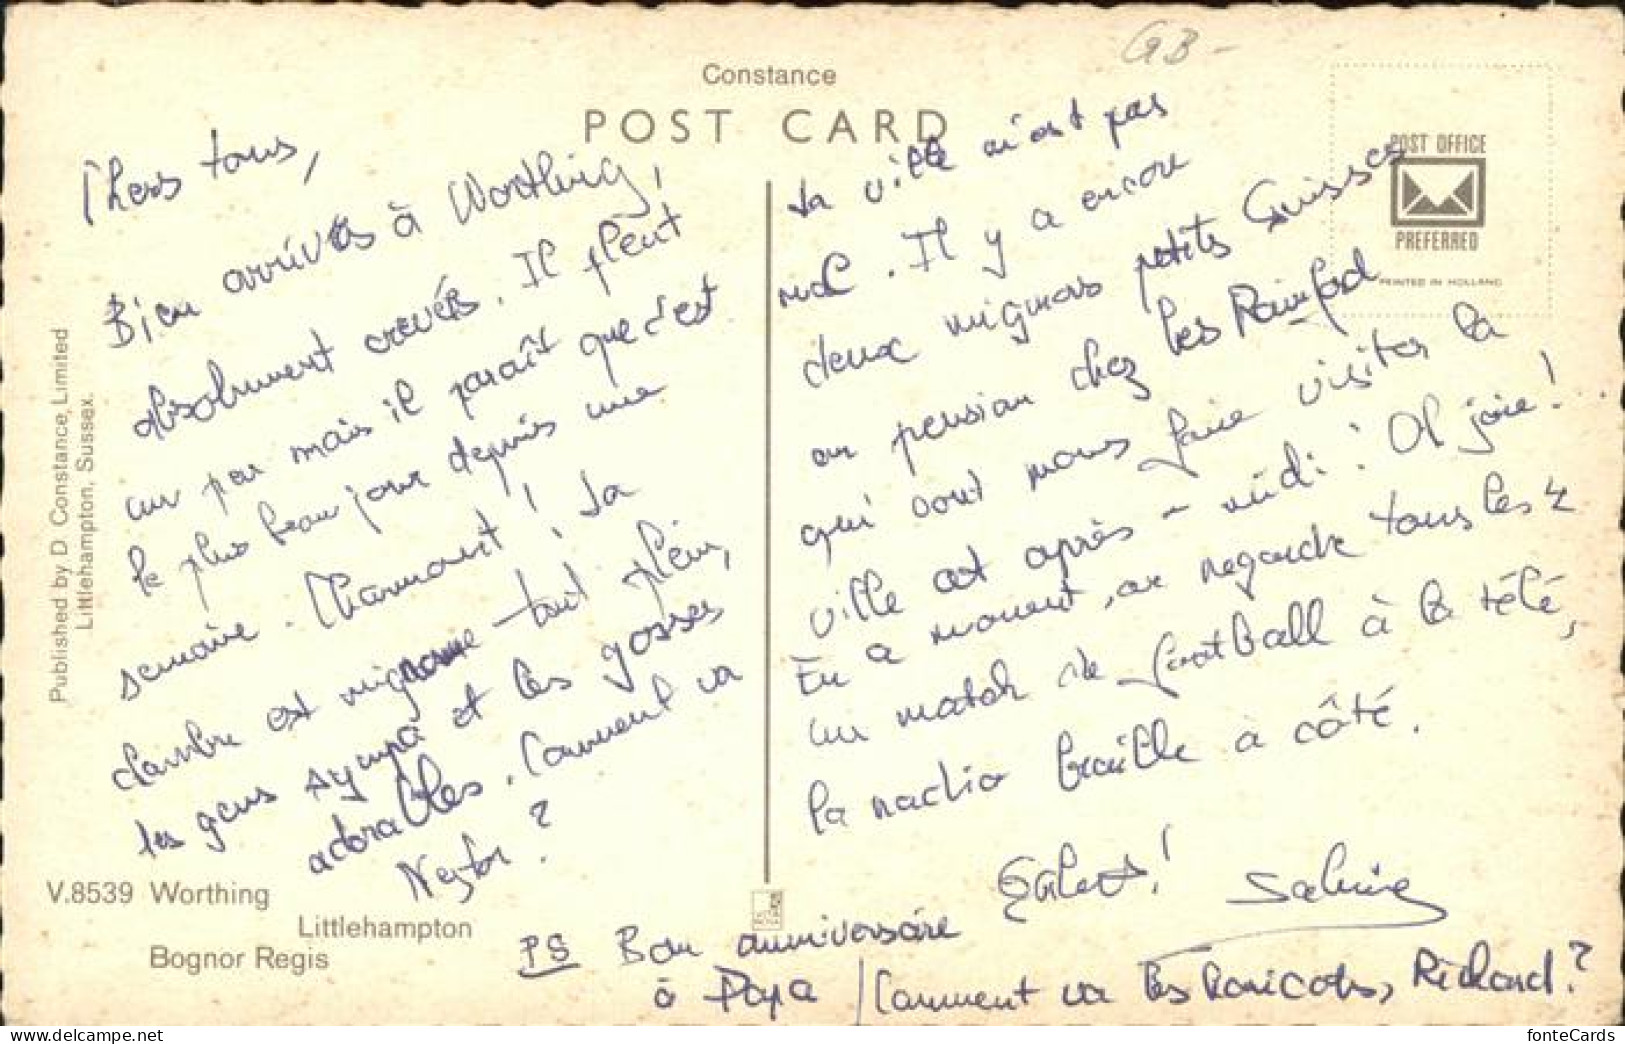 GB -
Constance
POST CARD
POST OFFICE
PREFERRED
PRINTED IN HOLLAND
Chers tous,
Bien arrivés à Worthing,
absolument crevés. Il pleut
un peu mais il paraît que c'est
le plus beau jour depuis une
semaine. Charmant ! La
chambre est mignonne tout plein,
les gens sympa et les gosses
adorables. Comment va
Nestor ?
La ville n'est pas
mal. Il y a encore
deux mignons petits Suisses
en pension chez les Rainford
qui vont nous faire visiter la
ville cet après-midi. Oh joie !
En ce moment, on regarde tous les 4
un match de football à la télé,
la radio braille à côté.
! Sabine
PS Bon anniversaire
à Papa / Comment va les haricots, Richard ?
Published by D Constance, Limited
Littlehampton, Sussex.
V.8539 Worthing
Littlehampton
Bognor Regis
fonteCards